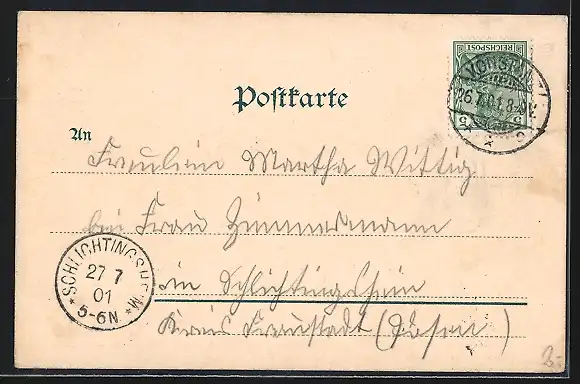 REICHSPOST
KONSTANZ
26.7.01.8-9V.
5 5
Postkarte
An
Fräulein Martha Wittig
bei Frau Zimmermann
in Schlichtingsheim
Kreis Fraustadt (Posen)
SCHLICHTINGSHEIM
27 7
01
5-6N.